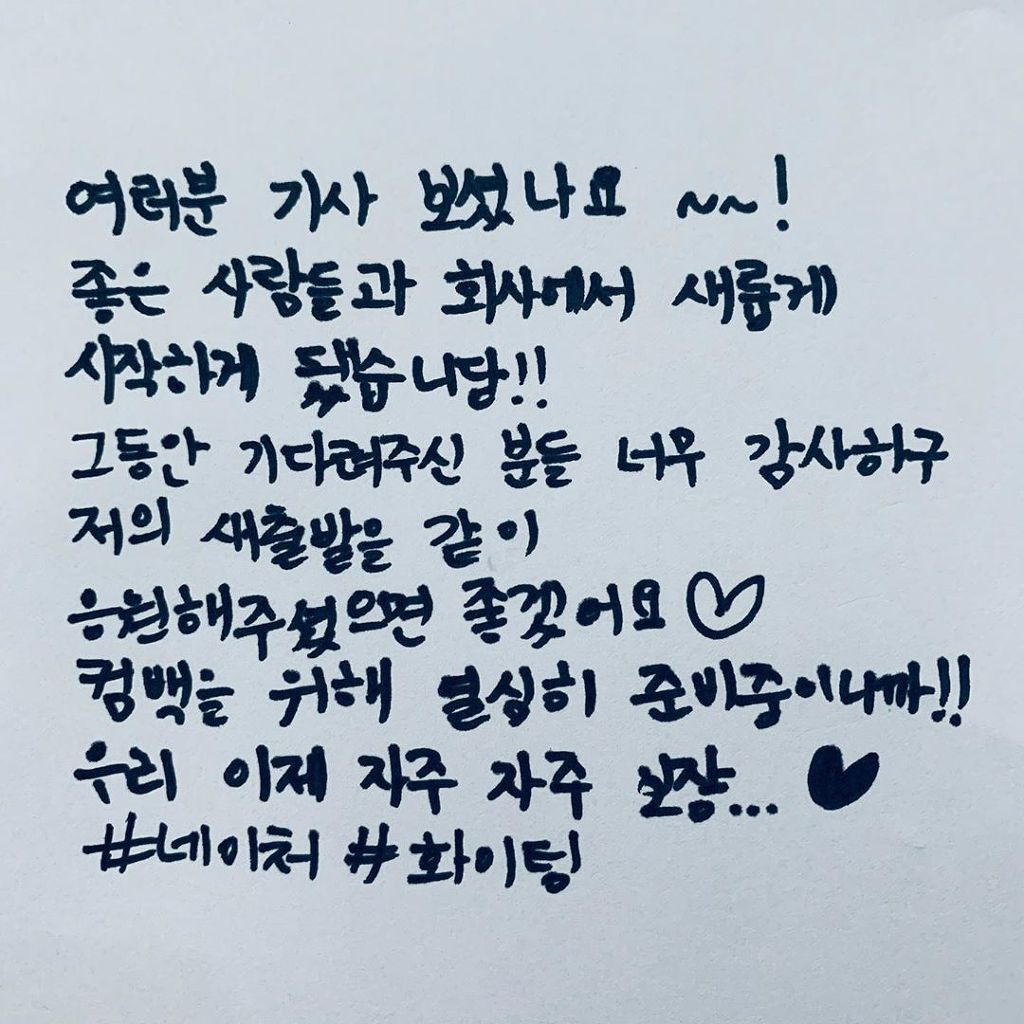 여러분 기사 보셨나요 ~~!
좋은 사람들과 회사에서 새롭게
시작하게 됐습니담!!
그동안 기다려주신 분들 너무 감사하구
저의 새출발을 같이
응원해주셨으면 좋겠어요♡
컴백을 위해 열심히 준비중이니까!!
우리 이제 자주 자주 보쟝...♥
#네이처 #화이팅